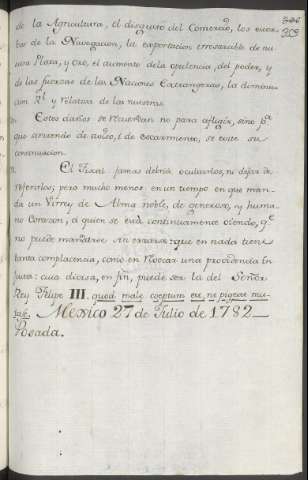 306
303
de la Agricultura, el disgusto del Comercio, los estor-
bos de la Navegacion, la exportacion irresarcible de nu
Plata, y oro, el aumento de la opulencia, del poder, y
de las fuerzas de las Naciones Extrangeras, la diminu
cion Rl. y relativa de las nuestras.
Estos daños se Recuerdan no para afligir, sino pa.
que sirviendo de aviso, i de escarmiento, se evite su
continuacion.
El Fiscal jamas debria ocultarlos, ni dejar de
referirlos; pero mucho menos en un tiempo en que man
da un Virrey de Alma noble, de generoso, y huma
no Corazon, á quien se está continuamente oiendo, qe.
no puede mandarse sin errarse: que en nada tiene
tanta complacencia, como en Revocar una providencia in
justa: cuia divisa, en fin, puede ser la del Señor
Rey Felipe III. quod male coeptum est, ne pigeat mu-
tasse. Mexico 27 de Julio de 1782_
Posada.